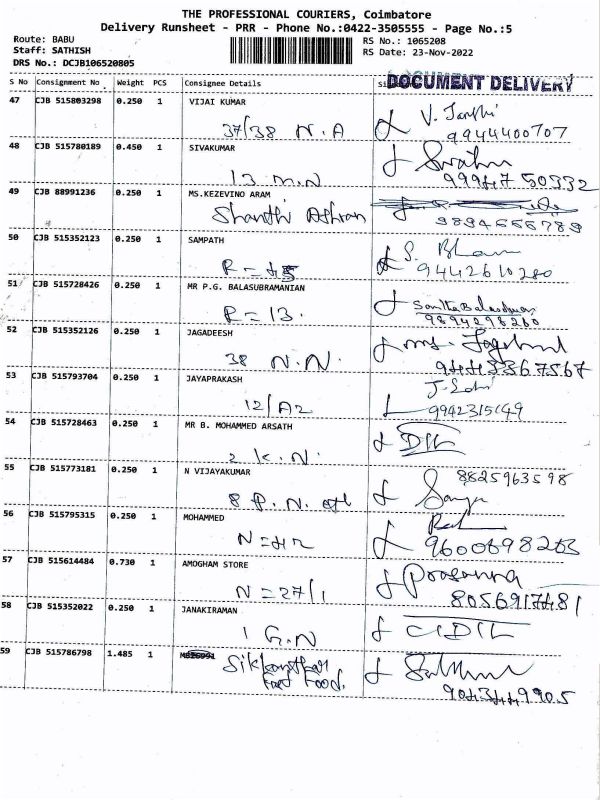 THE PROFESSIONAL COURIERS, Coimbatore
Delivery Runsheet - PRR - Phone No.:0422-3505555 - Page No.:5
Route: BABU
Staff: SATHISH
DRS No.: DCJB106520805
RS No.: 1065208
RS Date: 23-Nov-2022
S No Consignment No Weight PCS Consignee Details
DOCUMENT DELIVERY
47 CJB 515803298 0.250 1 VIJAI KUMAR
37/38 N.A
9944400707
48 CJB 515780189 0.450 1 SIVAKUMAR
13 M.N
9994750332
49 CJB 88991236 0.250 1 MS.KEZEVINO ARAM
Shanthi Ashram
9894666789
50 CJB 515352123 0.250 1 SAMPATH
R=45
S.
9442610280
51 CJB 515728426 0.250 1 MR P.G. BALASUBRAMANIAN
R=13.
9894298260
52 CJB 515352126 0.250 1 JAGADEESH
38 N.N.
9443367567
53 CJB 515793704 0.250 1 JAYAPRAKASH
12/A2
54 CJB 515728463 0.250 1 MR B. MOHAMMED ARSATH
2 K.N.
55 CJB 515773181 0.250 1 N VIJAYAKUMAR
8 P.N.
8825963598
56 CJB 515795315 0.250 1 MOHAMMED
9600698263
57 CJB 515614484 0.730 1 AMOGHAM STORE
N=27/1
Prasanna
8056917481
58 CJB 515352022 0.250 1 JANAKIRAMAN
1 G.N
59 CJB 515786798 1.485 1
Fast Food.
9043449905